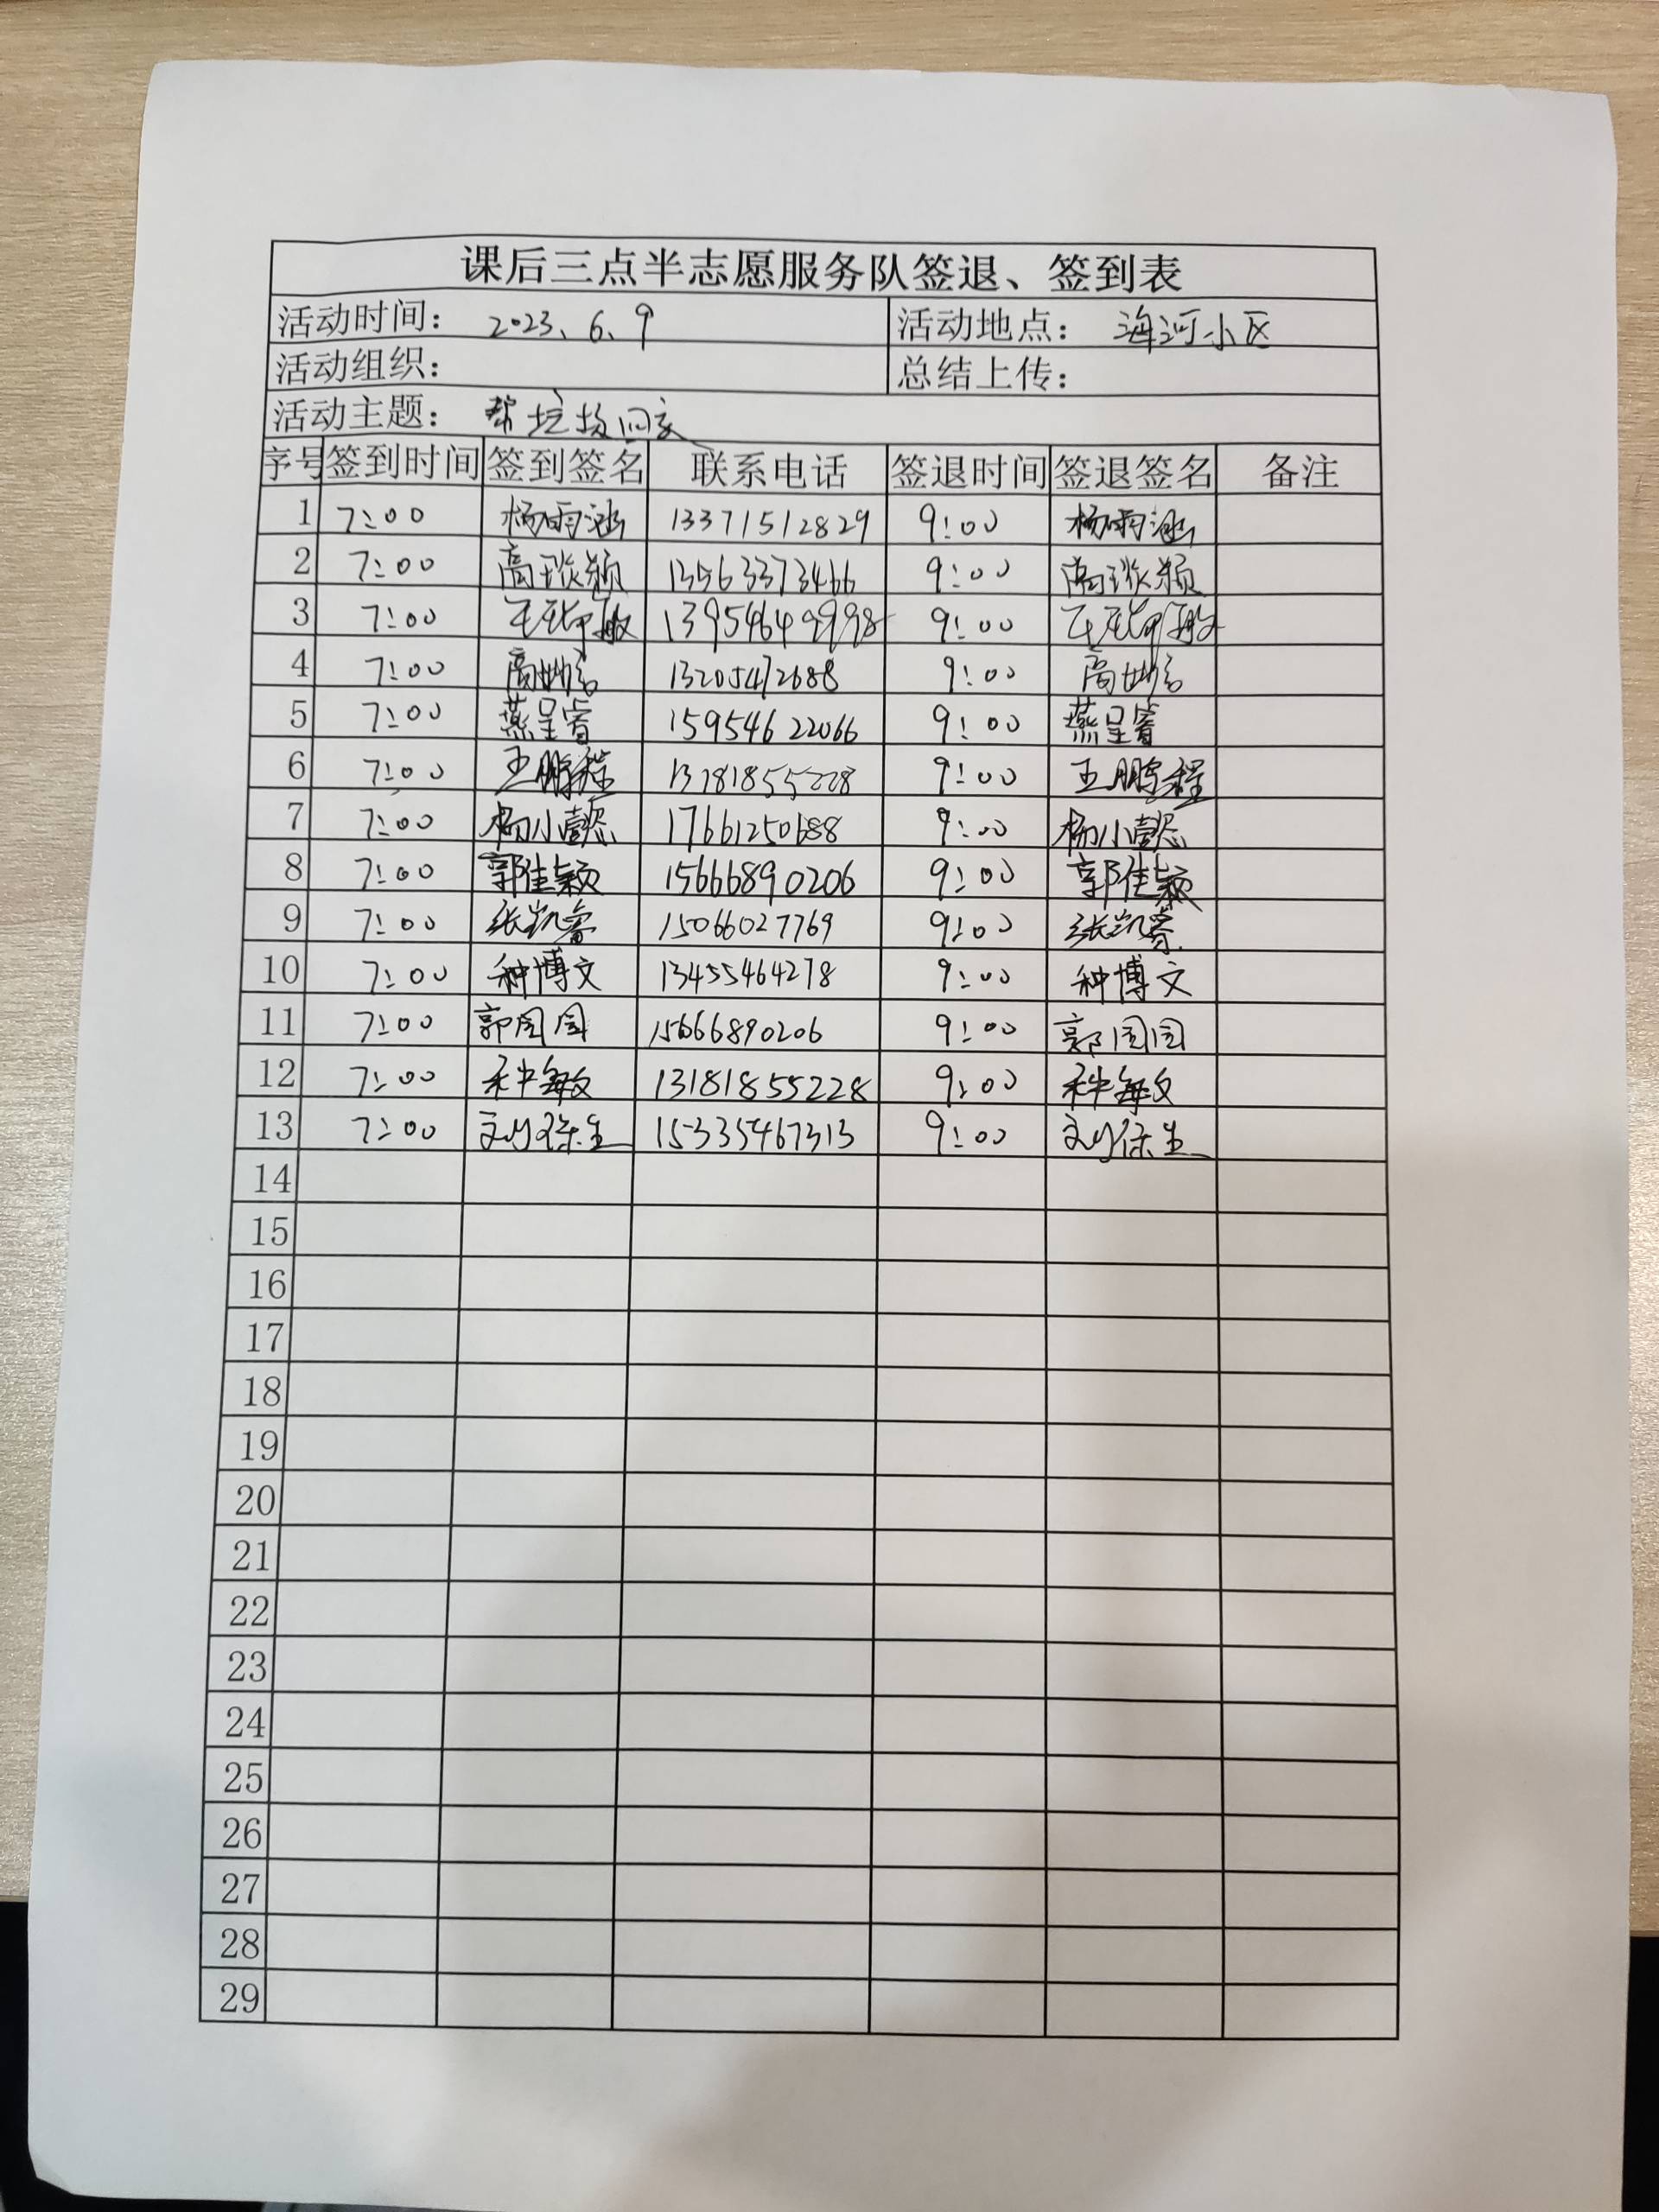 课后三点半志愿服务队签退、签到表
活动时间: 2023、6、9 活动地点: 海河小区
活动组织: 总结上传:
活动主题: 帮垃圾回家
序号 签到时间 签到签名 联系电话 签退时间 签退签名 备注
1 7:00 杨雨涵 13371512829 9:00 杨雨涵
2 7:00 高颖 13563373466 9:00 高颖
3 7:00 敏 13954649998 9:00 敏
4 7:00 高 13205472688 9:00 高
5 7:00 燕呈睿 15954622066 9:00 燕呈睿
6 7:00 王鹏程 13181855228 9:00 王鹏程
7 7:00 杨小懿 17661250688 9:00 杨小懿
8 7:00 郭佳颖 15666890206 9:00 郭佳颖
9 7:00 张凯睿 15066027769 9:00 张凯睿
10 7:00 种博文 13455464278 9:00 种博文
11 7:00 郭园园 15666890206 9:00 郭园园
12 7:00 种敏 13181855228 9:00 种敏
13 7:00 刘保生 15335467313 9:00 刘保生
14
15
16
17
18
19
20
21
22
23
24
25
26
27
28
29